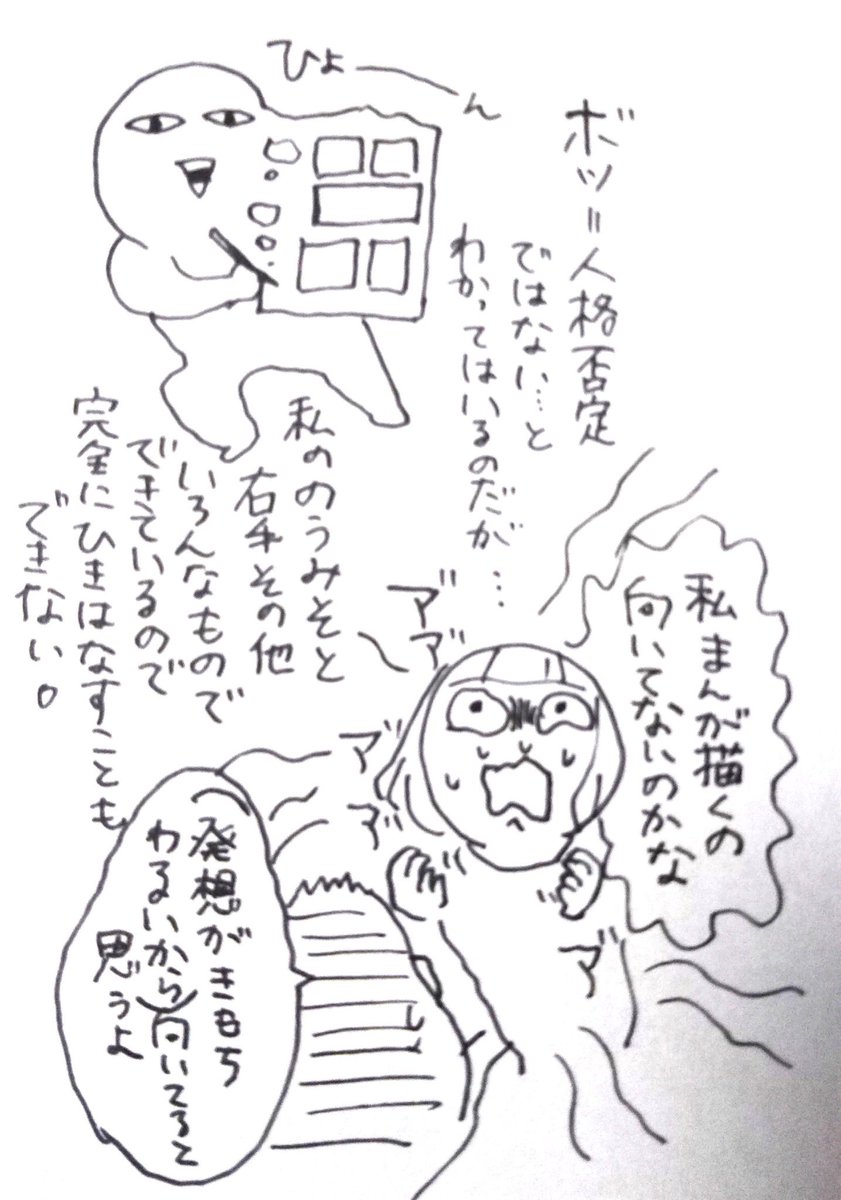 ひょーーん
ボツ=人格否定
ではない…と
わかってはいるのだが…
私ののうみそと
右手その他
いろんなもので
できているので
完全にひきはなすことも
できない。
私まんが描くの
向いてないのかな
アアアアア
発想がきもち
わるいから(向いてると
思うよ